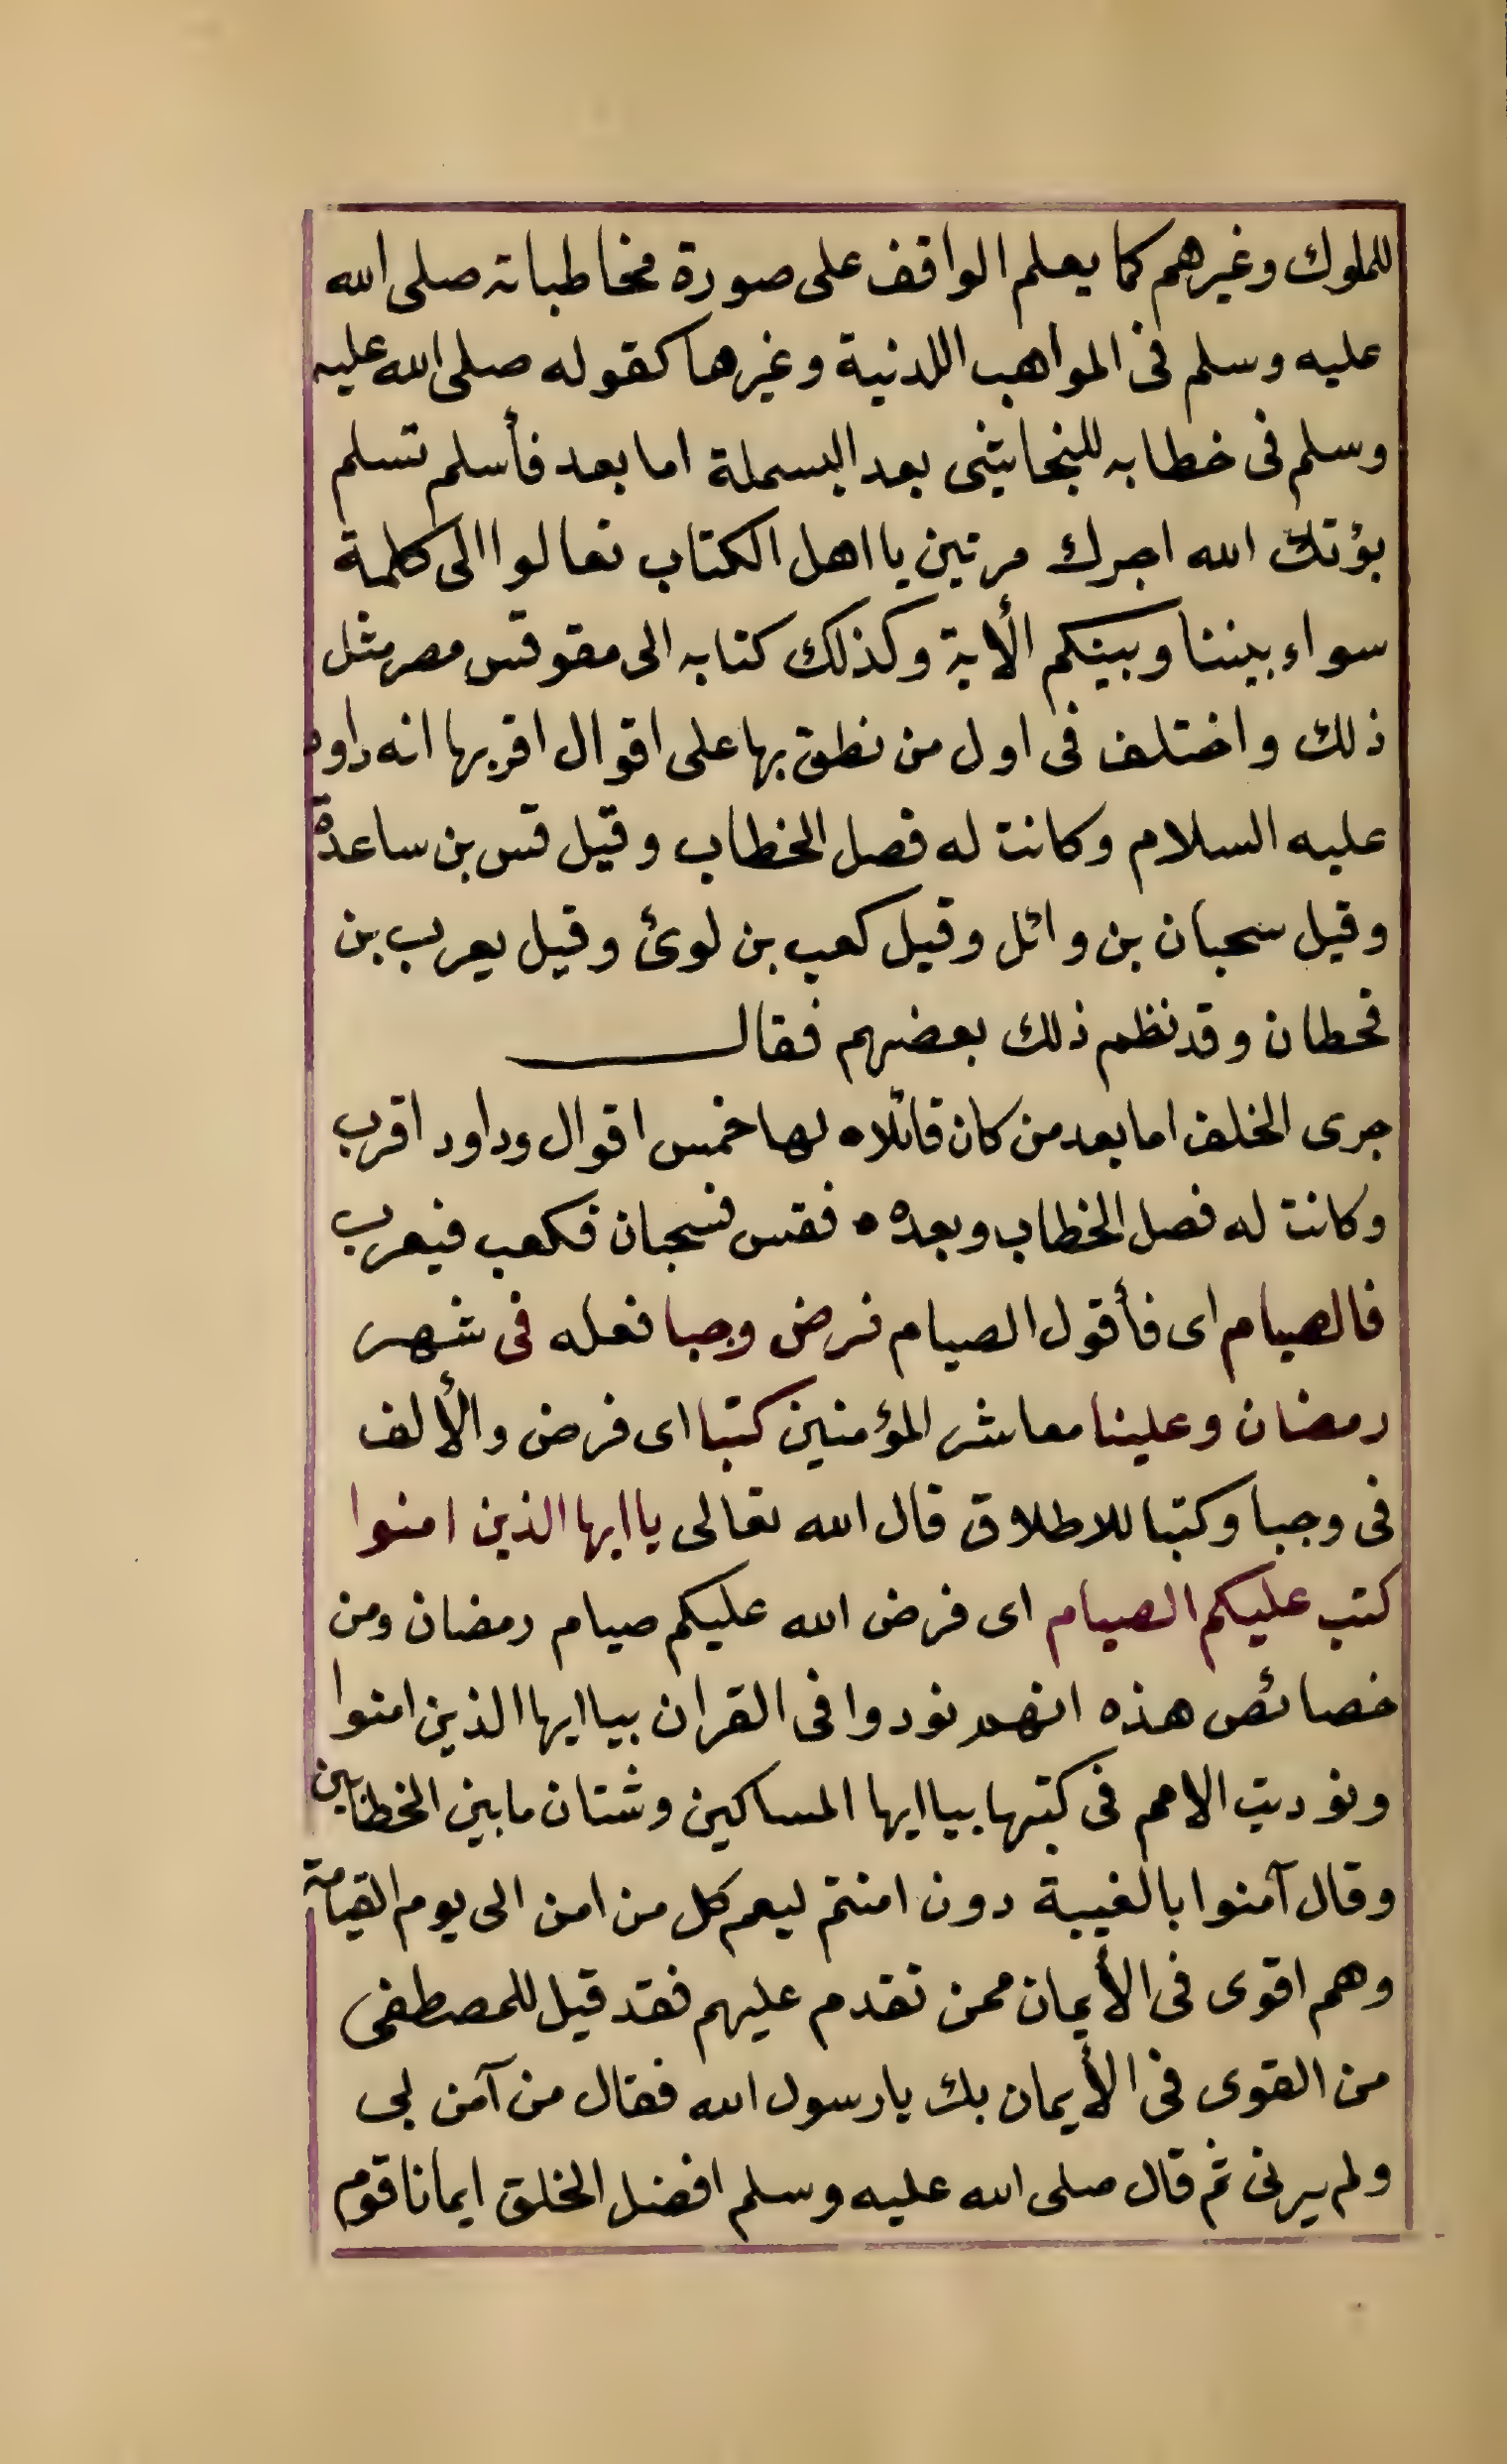 للملوك وغيرهم كما يعلم الواقف على صورة مخاطباته صلى الله
عليه وسلم فى المواهب اللدنية وغيرها كقوله صلى الله عليه
وسلم فى خطابه للنجاشى بعد البسملة اما بعد فأسلم تسلم
يؤتك الله اجرك مرتين يا اهل الكتاب تعالوا الى كلمة
سواء بيننا وبينكم الأية وكذلك كتابه الى مقوقس مصر مثل
ذلك واختلف فى اول من نطق بها على اقوال اقربها انه داود
عليه السلام وكانت له فصل الخطاب وقيل قس بن ساعدة
وقيل سحبان بن وائل وقيل كعب بن لوئ وقيل يعرب بن
قحطان وقد نظم ذلك بعضهم فقال
جرى الخلف اما بعد من كان قائلا ه لها خمس اقوال وداود اقرب
وكانت له فصل الخطاب وبعده ه فقس فسحبان فكعب فيعرب
فالصيام اى فأقول الصيام فرض وجبا فعله فى شهر
رمضان وعلينا معاشر المؤمنين كتبا اى فرض والألف
فى وجبا وكتبا للاطلاق قال الله تعالى يا ايها الذين امنوا
كتب عليكم الصيام اى فرض الله عليكم صيام رمضان ومن
خصائص هذه انهم نودوا فى القران بيا ايها الذين امنوا
ونوديت الامم فى كتبها بيا ايها المساكين وشتان ما بين الخطابين
وقال آمنوا بالغيبة دون امنتم ليعم كل من امن الى يوم القيامة
وهم اقوى فى الأيمان ممن تقدم عليهم فقد قيل للمصطفى
من القوى فى الأيمان بك يا رسول الله فقال من آمن بى
ولم يرنى ثم قال صلى الله عليه وسلم افضل الخلق ايمانا قوم